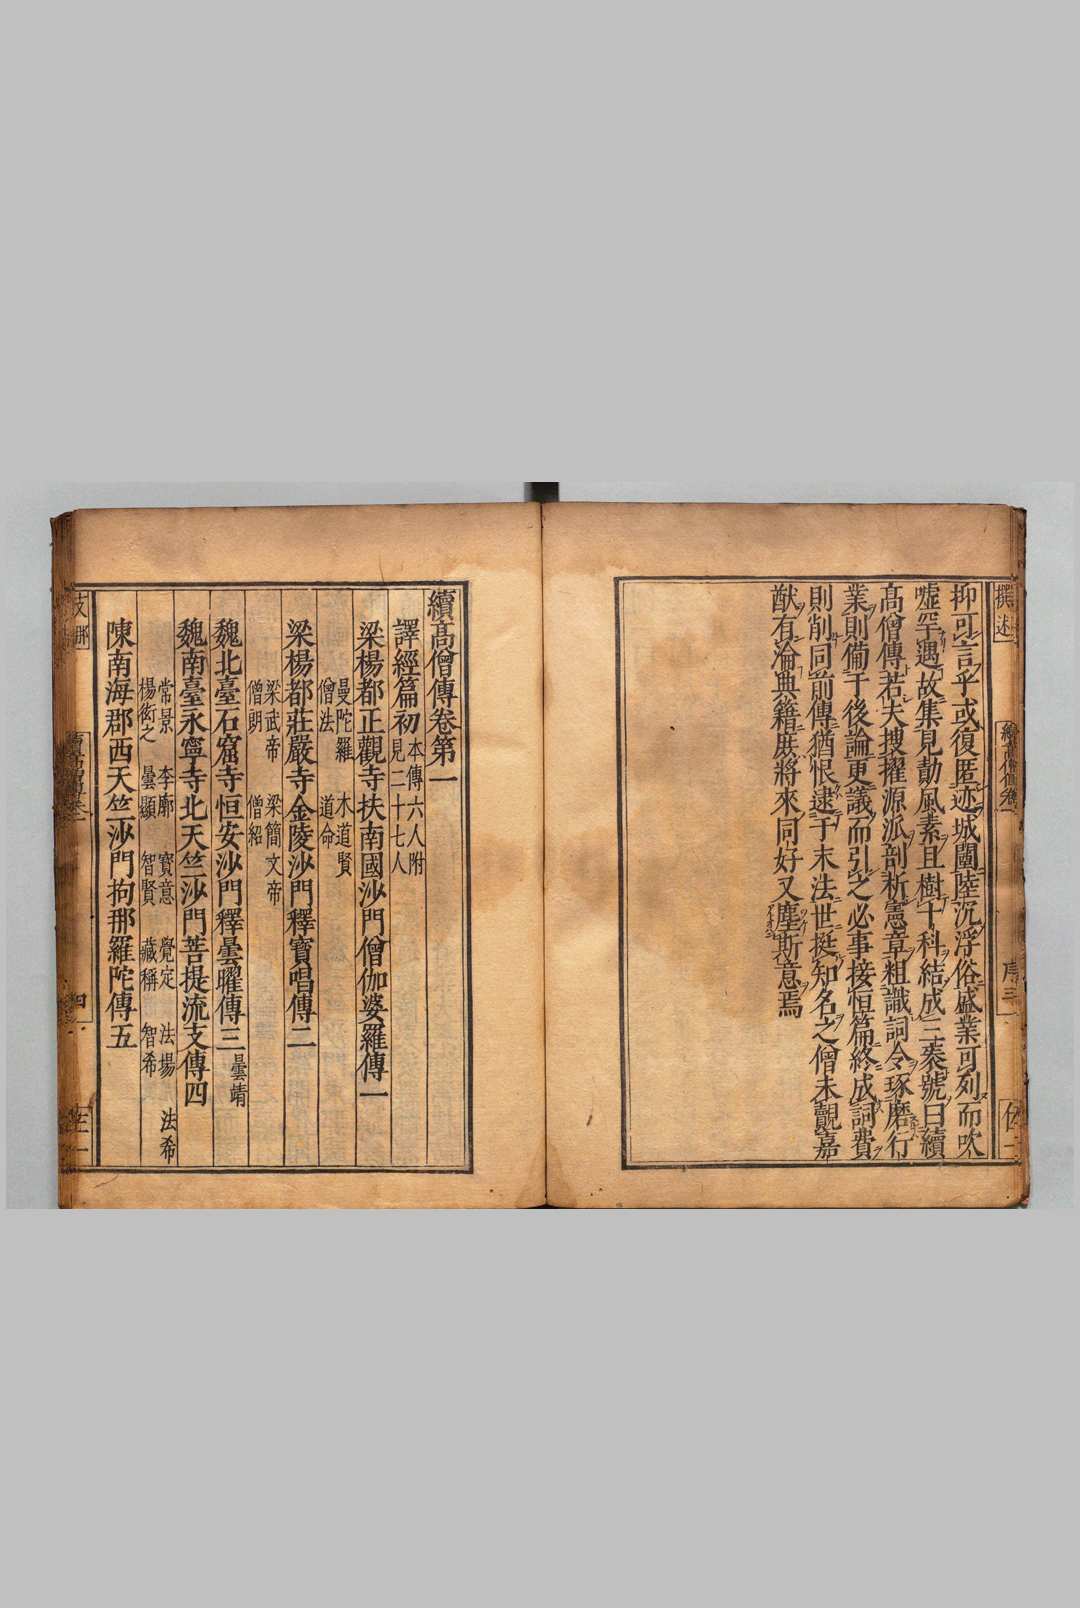 撰述
抑可言乎或復匿迹城闉陸沉浮俗盛業可列而吹
噓罕遇故集見勣風素且樹十科結成三袠號曰續
高僧傳若夫搜擢源派剖析憲章粗識詞令琢磨行
業則備于後論更議而引之必事接恒篇終成詞費
則削同前傳猶恨逮于末法世挺知名之僧未覿嘉
猷有淪典籍庶將來同好又塵斯意焉
續高僧傳卷第一
譯經篇初 本傳六人附
見二十七人
梁楊都正觀寺扶南國沙門僧伽婆羅傳一
曼陀羅 木道賢
僧法 道命
梁楊都莊嚴寺金陵沙門釋寶唱傳二
梁武帝 梁簡文帝
僧朗 僧紹
魏北臺石窟寺恒安沙門釋曇曜傳三 曇靖
魏南臺永寧寺北天竺沙門菩提流支傳四
常景 李廓 寶意 覺定 法場 法希
楊衒之 曇顯 智賢 藏稱 智希
陳南海郡西天竺沙門拘那羅陀傳五